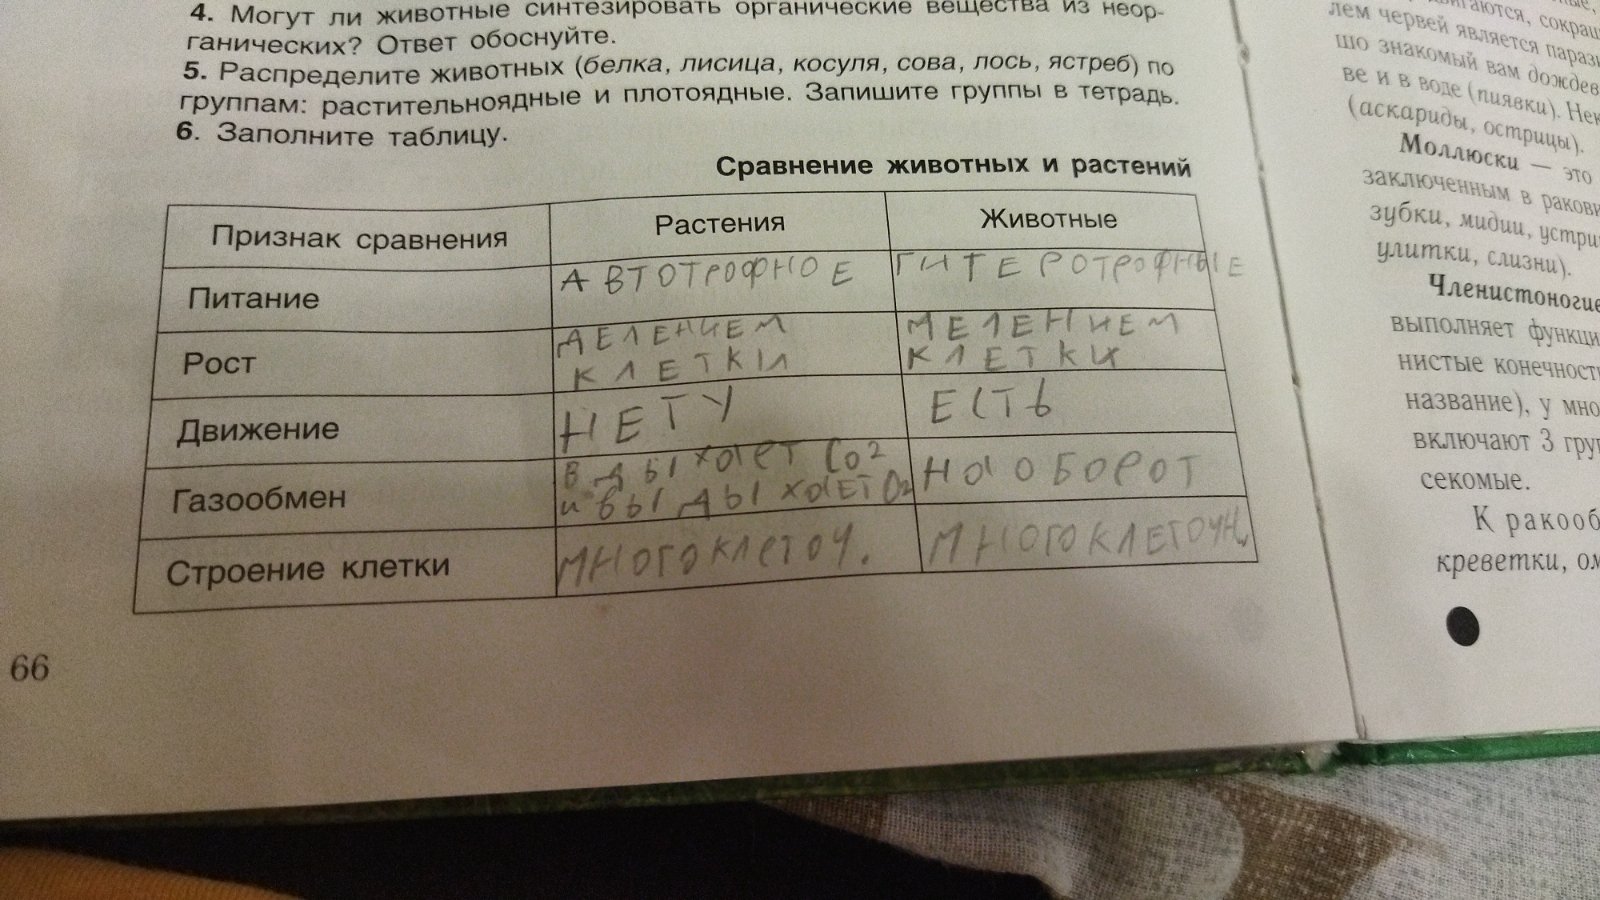 4. Могут ли животные синтезировать органические вещества из неор-
ганических? Ответ обоснуйте.
5. Распределите животных (белка, лисица, косуля, сова, лось, ястреб) по
группам: растительноядные и плотоядные. Запишите группы в тетрадь.
6. Заполните таблицу.
Сравнение животных и растений
Признак сравнения Растения Животные
Питание АВТОТРОФНОЕ ГИТЕРОТРОФНЫЕ
Рост ДЕЛЕНИЕМ КЛЕТКИ МЕЛЕНИЕМ КЛЕТКИ
Движение НЕТУ ЕСТЬ
Газообмен ВДЫХАЕТ CO2 и ВЫДЫХАЕТ O2 НАОБОРОТ
Строение клетки МНОГОКЛЕТОЧ. МНОГОКЛЕТОЧН.
66
лем червей является
шо знакомый вам дождев
ве и в воде (пиявки). Нек
(аскариды, острицы).
Моллюски — это
заключенным в ракови
зубки, мидии, устри
улитки, слизни).
Членистоногие
выполняет функци
нистые конечност
название), у мно
включают 3 гру
секомые.
К ракооб
креветки, ом